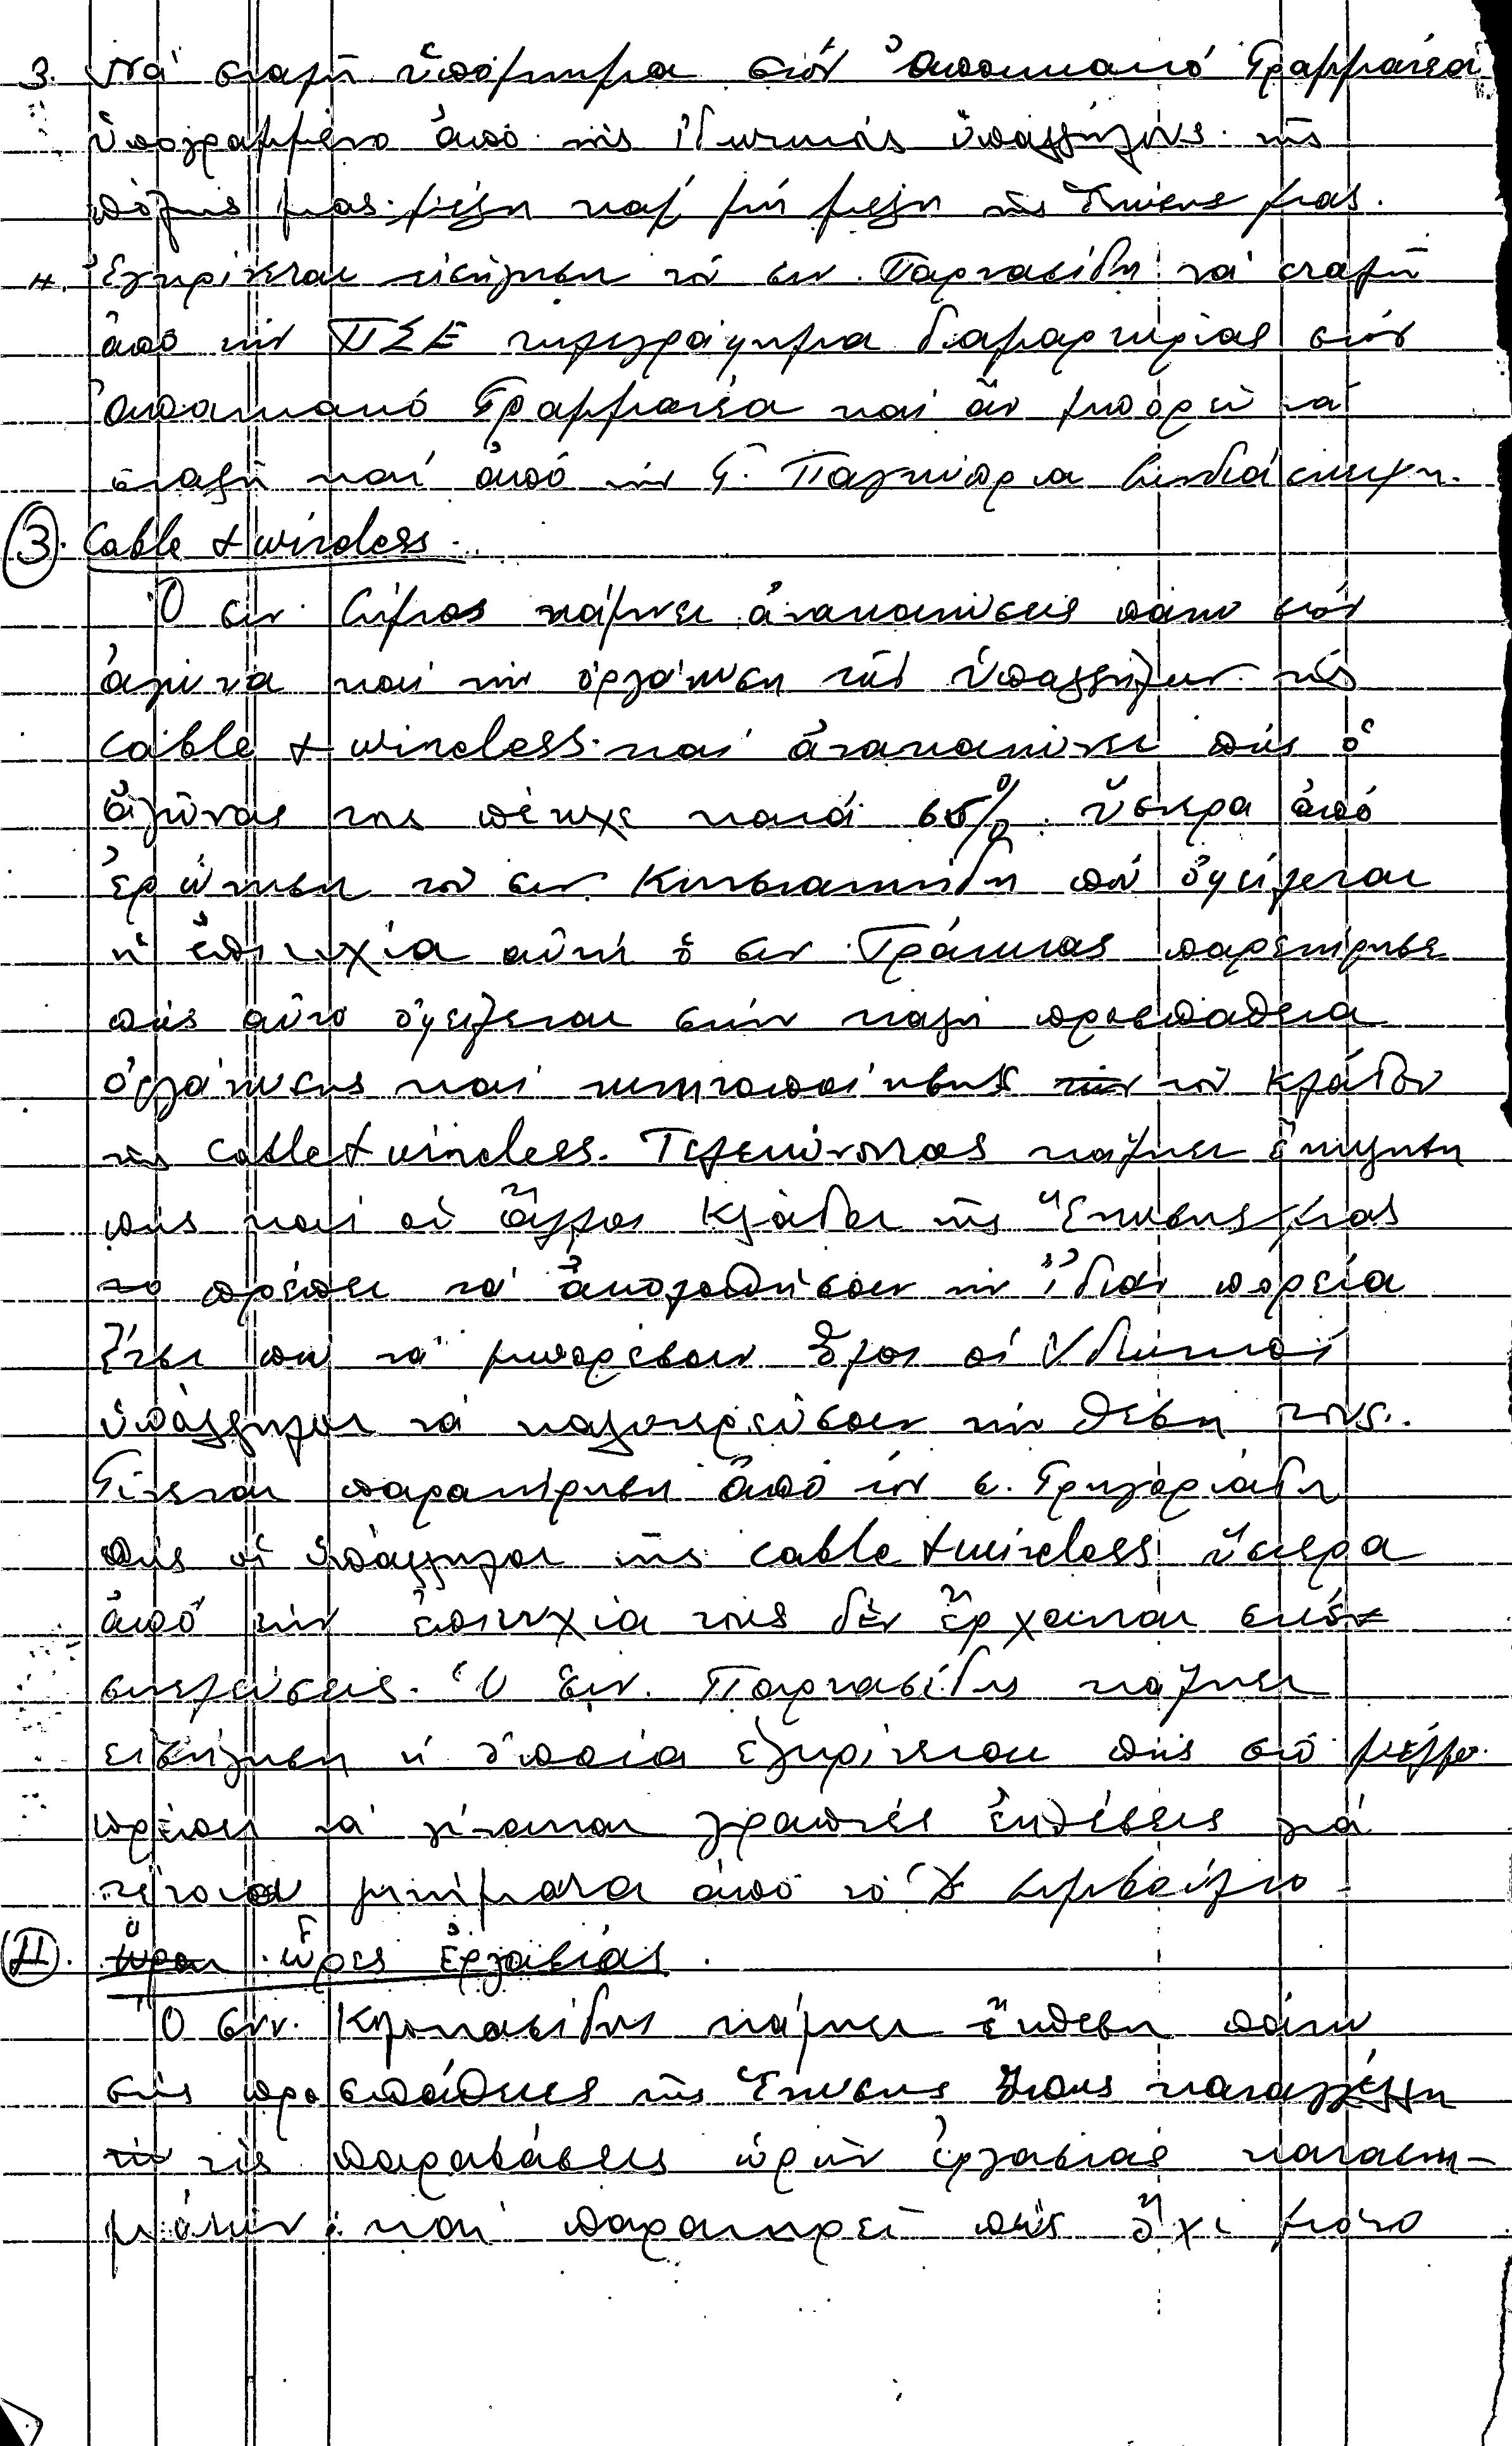 3. Νά σταλῆ ὑπόμνημα στόν Ἀποικιακό Γραμματέα
ὑπογραμμένο ἀπό τούς ἰδιωτικούς ὑπαλλήλους τῆς
πόλης μας μέλη καί μή μέλη τῆς Ἑνώσης μας.
4. Ἐγκρίνεται εἰσήγηση τοῦ συν. Παρνασίδη νά σταλῆ
ἀπό τήν ΠΣΕ τηλεγράφημα διαμαρτυρίας στόν
Ἀποικιακό Γραμματέα καί ἄν μπορεῖ νά
σταλῆ καί ἀπό τήν Γ. Παγκύπρια Συνδιάσκεψη.
3. Cable & wireless.
Ὁ συν. Σίμος κάμνει ἀνακοινώσεις πάνω στόν
ἀγώνα καί τήν ὀργάνωση τῶν ὑπαλλήλων τῆς
cable & wireless καί ἀνακοινώνει πώς ὁ
ἀγώνας τους πέτυχε κατά 65%. ὕστερα ἀπό
ἐρώτηση τοῦ συν. Κωνσταντινίδη πού ὀφείλεται
ἡ ἐπιτυχία αὐτή ὁ συν. Γράκιας παρετήρησε
πώς αὐτό ὀφείλεται στήν καλή προσπάθεια
ὀργάνωσης καί κινητοποίησης τοῦ Κλάδου
τῆς cable & wireless. Τελειώνοντας κάμνει ἔκκληση
πώς καί οἱ ἄλλοι Κλάδοι τῆς Ἕνωσης μας
πρέπει νά ἀκολουθήσουν τήν ἴδιαν πορεία
ἔτσι πού νά μπορέσουν ὅλοι οἱ ἰδιωτικοί
ὑπάλληλοι νά καλυτερεύσουν τήν θέση τους.
Γίνεται παρατήρηση ἀπό τόν σ. Γρηγοριάδη
πώς οἱ ὑπάλληλοι τῆς cable & wireless ὕστερα
ἀπό τήν ἐπιτυχία τους δέν ἔρχονται στίς
συνελεύσεις. Ὁ Συν. Παρνασίδης κάμνει
εἰσήγηση ἡ ὁποία ἐγκρίνεται πώς στό μέλλον
πρέπει νά γίνονται γραπτές ἐκθέσεις γιά
τέτοια κινήματα ἀπό τό Συμβούλιο
4. ὧρες ἐργασίας.
Ὁ συν. Κληρονασίδης κάμνει ἔκθεση πάνω
στίς προσπάθειες τῆς Ἕνωσης ὅπως καταγγέλλη
τίς παραβάσεις ὡρῶν ἐργασίας καταστη-
μάτων καί παρατηρεῖ πώς ὄχι μόνο